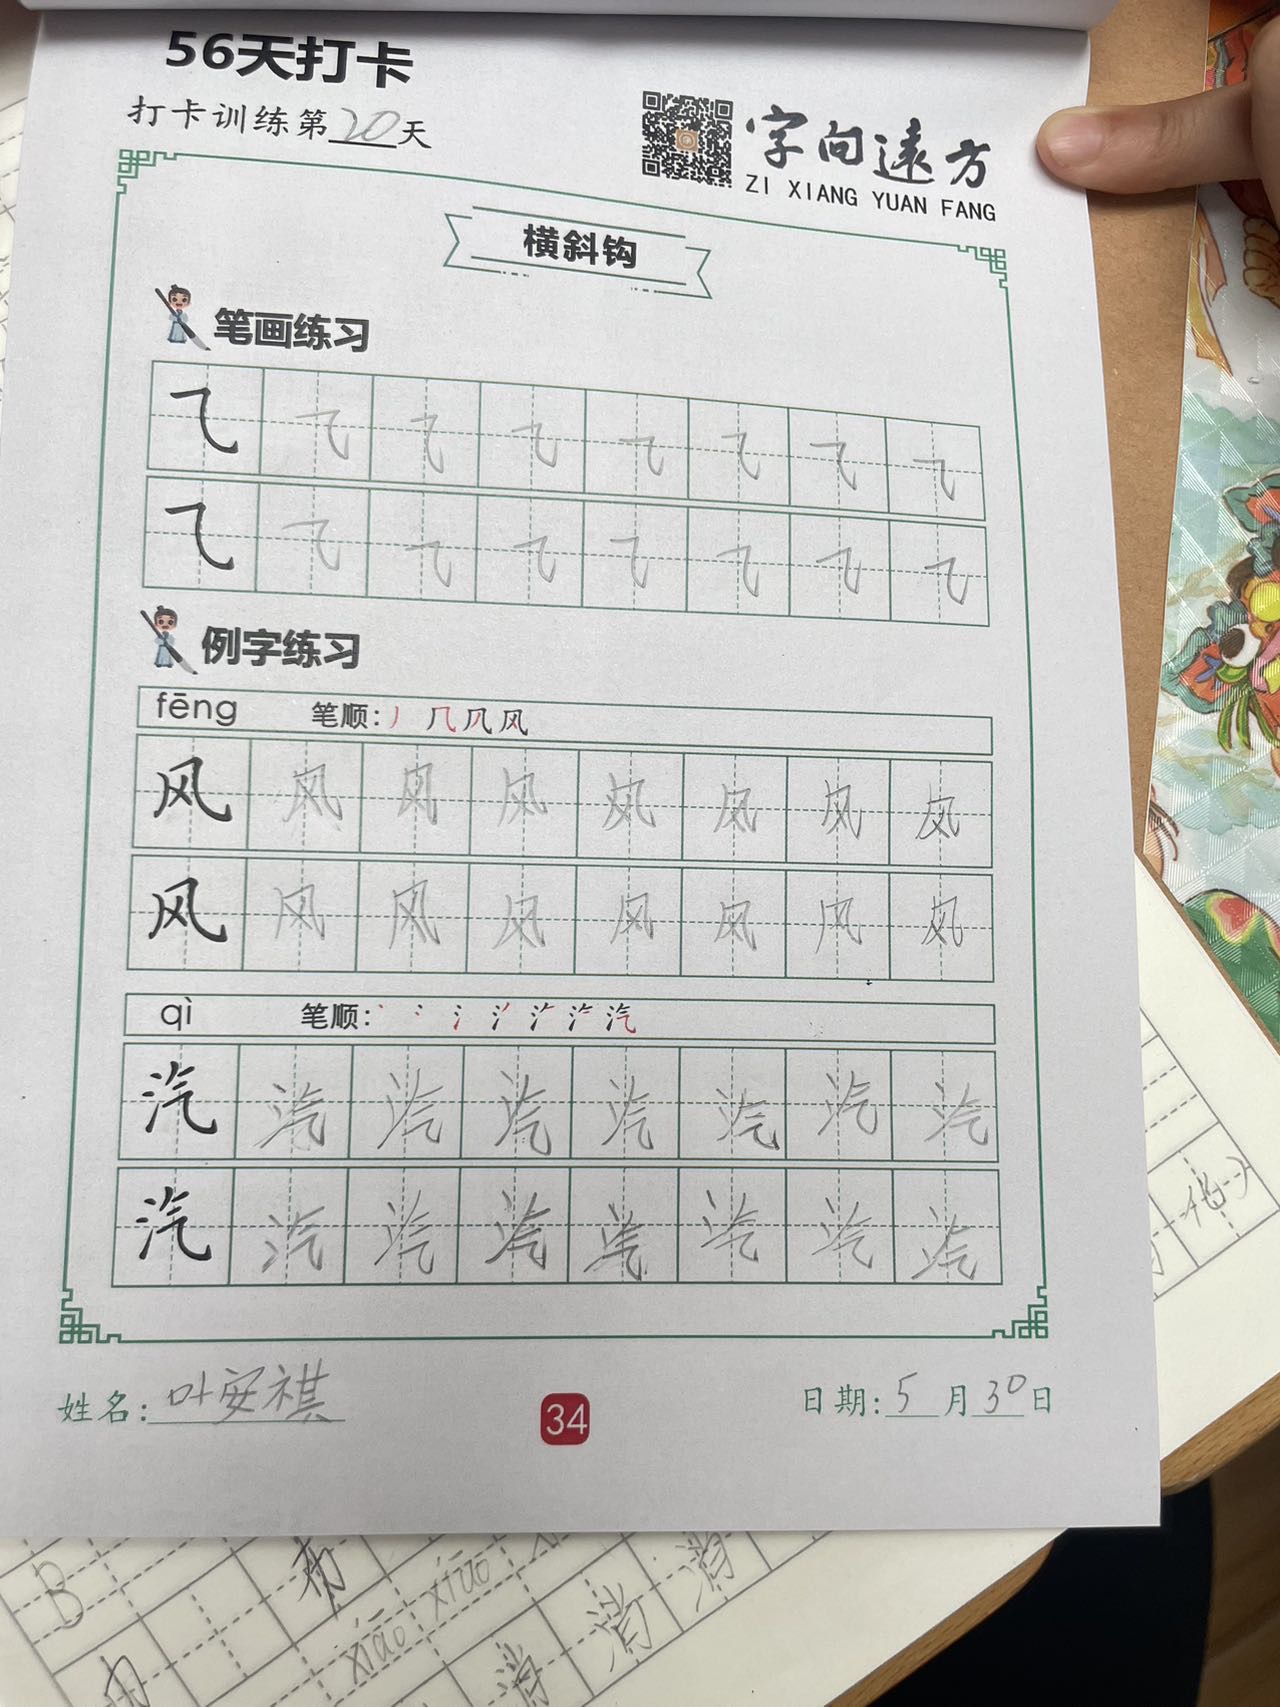 56天打卡
打卡训练第20天
字向遠方
ZI XIANG YUAN FANG
横斜钩
笔画练习
⺄ ⺄ ⺄ ⺄ ⺄ ⺄ ⺄ ⺄
⺄ ⺄ ⺄ ⺄ ⺄ ⺄ ⺄ ⺄
例字练习
fēng 笔顺: 丿 几 风
风 风 风 风 风 风 风 风
风 风 风 风 风 风 风 风
qì 笔顺: 汽
汽 汽 汽 汽 汽 汽 汽 汽
汽 汽 汽 汽 汽 汽 汽 汽
姓名: 叶安祺
34
日期: 5月30日
B
xiāo xiāo
消 消 消